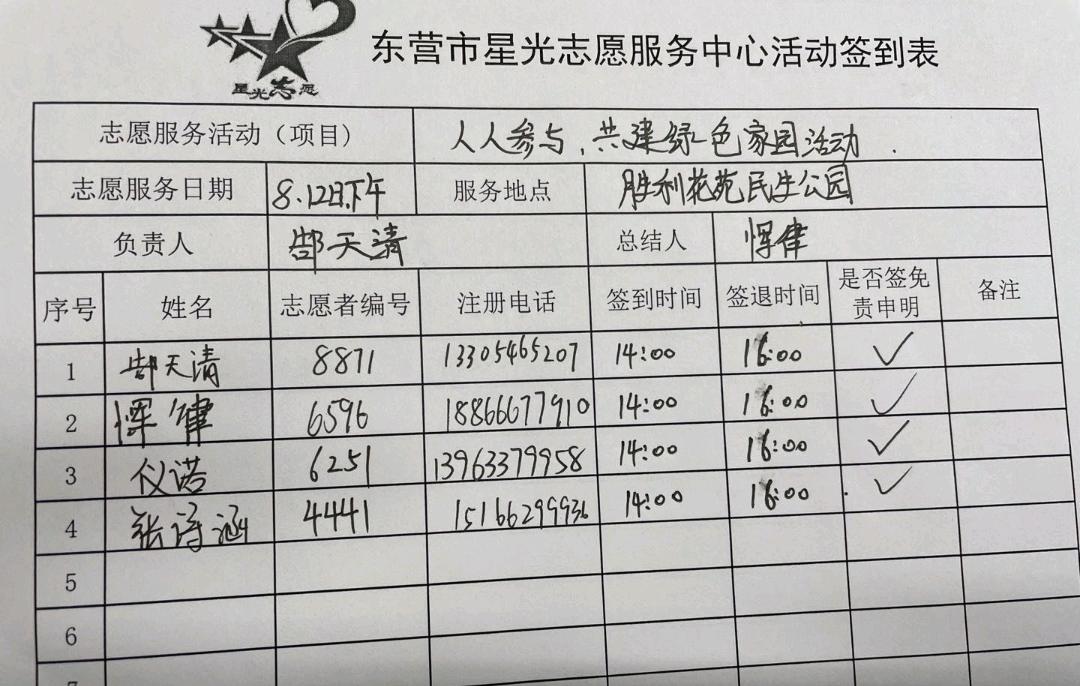 星光志愿
东营市星光志愿服务中心活动签到表
志愿服务活动（项目） 人人参与，共建绿色家园活动
志愿服务日期 8.12日下午 服务地点 胜利花苑民生公园
负责人 郜天清 总结人 恽律
序号 姓名 志愿者编号 注册电话 签到时间 签退时间 是否签免责申明 备注
1 郜天清 8871 13305465207 14:00 16:00 ✓
2 恽律 6596 18866677910 14:00 16:00 ✓
3 仪诺 6251 13963379958 14:00 16:00 ✓
4 张诗涵 4441 15166299936 14:00 16:00 ✓
5
6
7